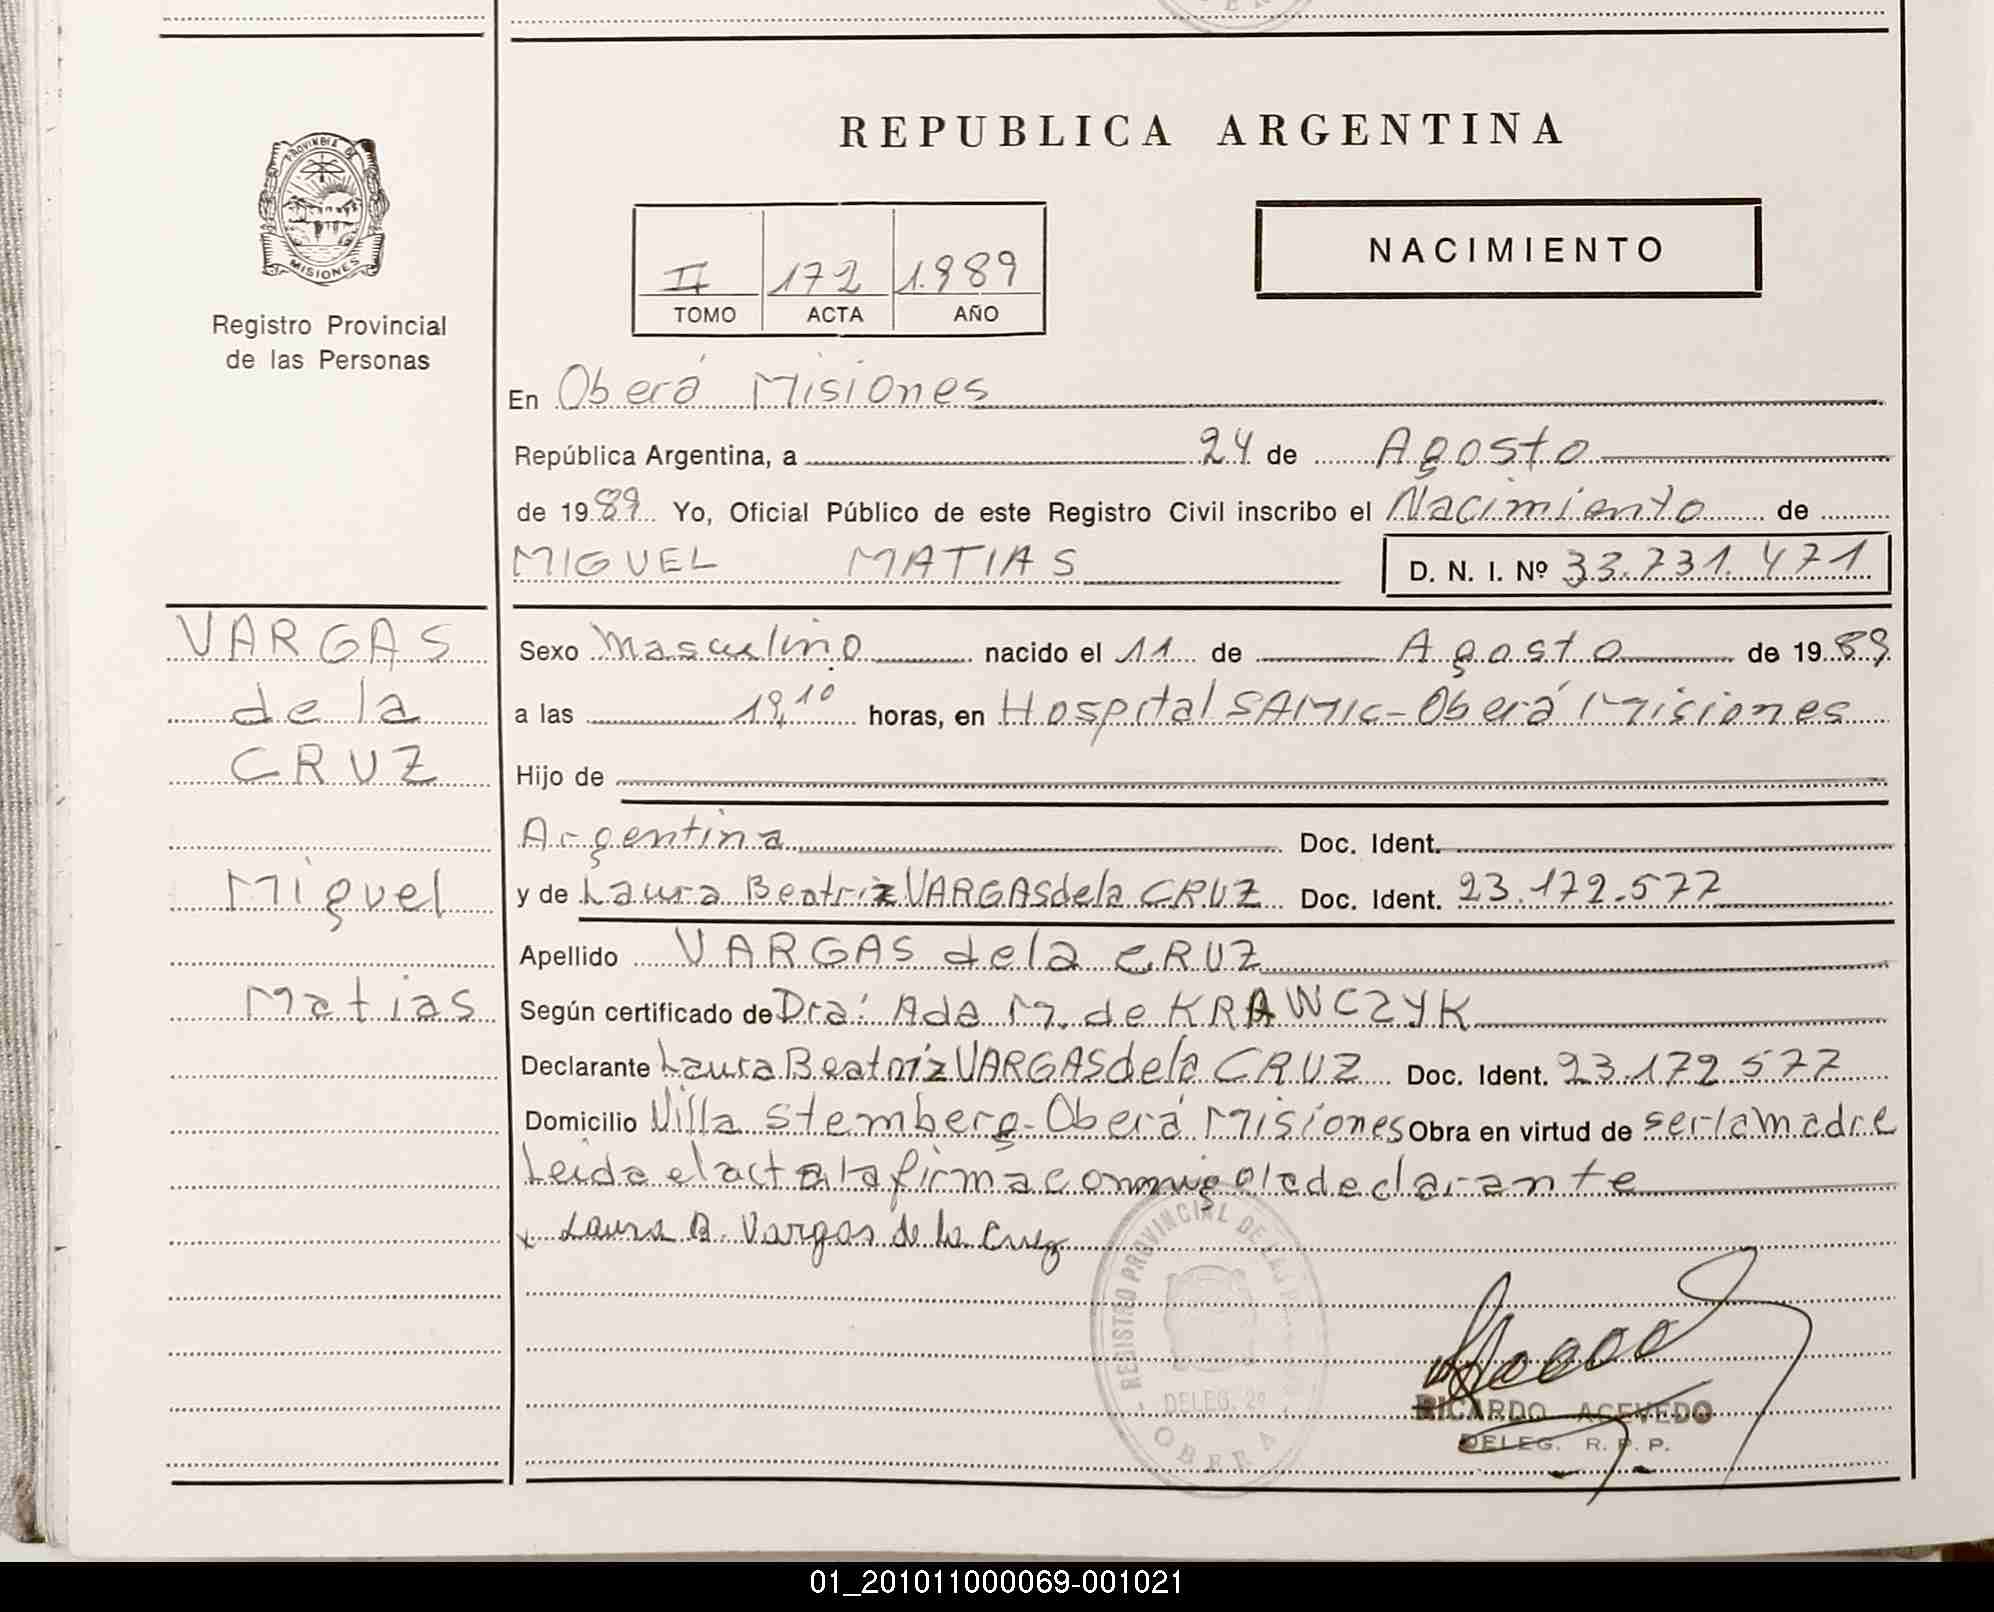 PROVINCIA DE
MISIONES
Registro Provincial
de las Personas
REPUBLICA ARGENTINA
II 172 1.989
TOMO ACTA AÑO
NACIMIENTO
En Oberá Misiones
República Argentina, a 24 de Agosto
de 1989 Yo, Oficial Público de este Registro Civil inscribo el Nacimiento de
MIGUEL MATIAS D. N. I. Nº 33.731.471
VARGAS
de la
CRUZ
Miguel
Matias
Sexo Masculino nacido el 11 de Agosto de 1989
a las 19,10 horas, en Hospital SAMIC-Oberá Misiones
Hijo de
Argentina Doc. Ident.
y de Laura Beatriz VARGAS de la CRUZ Doc. Ident. 23.172.577
Apellido VARGAS de la CRUZ
Según certificado de Dra: Ada M. de KRAWCZYK
Declarante Laura Beatriz VARGAS de la CRUZ Doc. Ident. 23.172.577
Domicilio Villa Stemberg-Oberá Misiones Obra en virtud de ser la madre
Leida el acta la firma conmigo la declarante
x Laura B. Vargas de la Cruz
REGISTRO PROVINCIAL DE LAS
DELEG. 2º
OBERA
RICARDO ACEVEDO
DELEG. R. P. P.
01_201011000069-001021